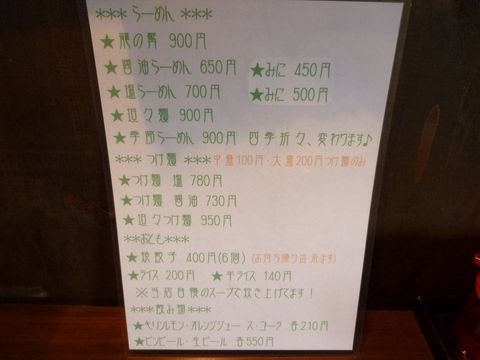 *** らーめん ***
★豚の骨 900円
★醤油らーめん 650円 ★みに 450円
★塩らーめん 700円 ★みに 500円
★坦々麺 900円
★季節らーめん 900円 四季折々、変わります♪
*** つけ麺 ***中盛100円・大盛200円つけ麺のみ
★つけ麺 塩 780円
★つけ麺 醤油 730円
★坦々つけ麺 950円
**おとも***
★焼餃子 400円(6個) (お持ち帰り出来ます)
★ライス 200円 ★半ライス 140円
※当店自慢のスープで炊き上げてます!
***飲み物***
★キリンレモン・オレンジジュース・コーラ 各210円
★ビンビール・生ビール 各550円